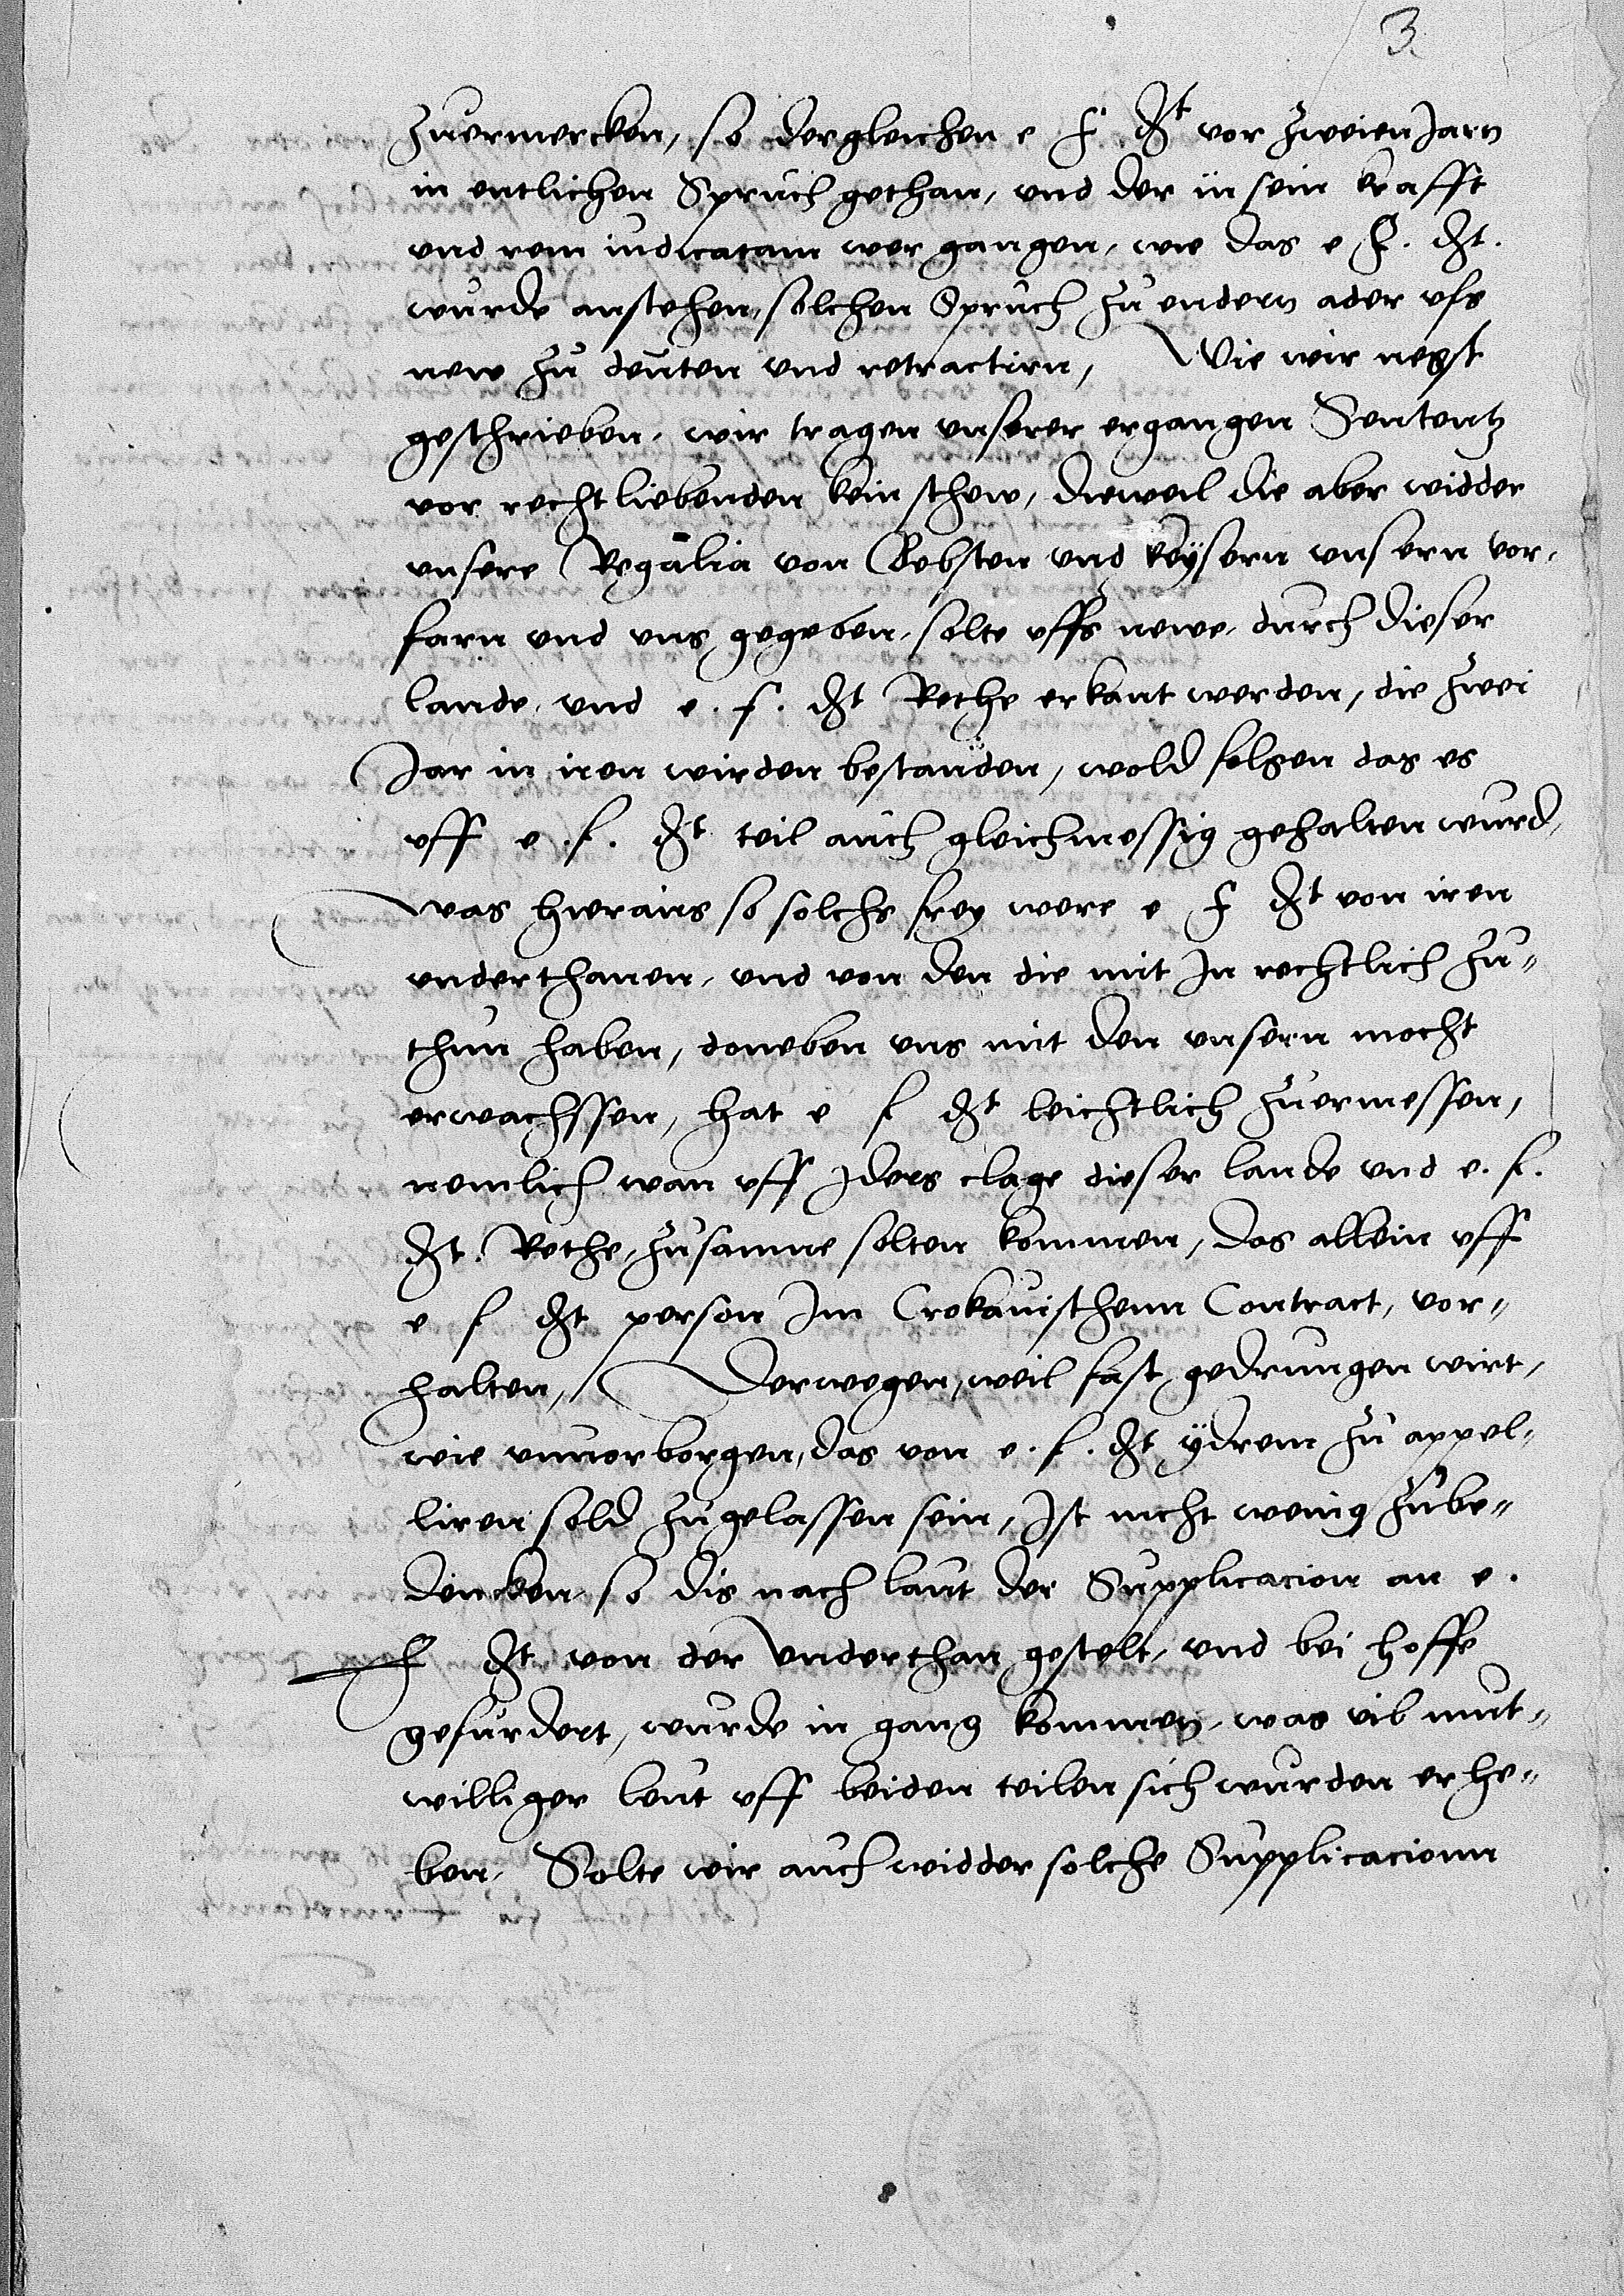 3
zuermercken, so dergleichen e f dt vor zweien Jarn
in entlichen Spruch gethan, und der in sein krafft
und rem iudicatam wer gangen, wie das e f. dt.
wurde anstehen, solchen Spruch zu endern ader ufs
new zu deuten und retractirn, Wie wir negst
geschrieben, wir tragen unserer ergangen Sententz
vor rechtliebenden kein schew, dieweil die aber widder
unsere Regalia von Bebsten und keysern unsern vor,
farn und uns gegeben, solte uffs newe, durch dieser
lande, und e. f. dt Rethe erkant werden, die zwei
Jar in iren wirden bestanden, wold folgen das es
uff e. f. dt teil auch gleichmessig gehalten wurd,
was hieraus so solchs frey were e f dt von iren
underthanen, und von den die mit In rechtlich zu„
thun haben, doneben uns mit den unsern mocht
erwachssen, hat e f dt leichtlich zuermessen,
nemlich wan uff Iders clage dieser lande und e. f.
dt. Rethe, zusamne solten kommen, das allein uff
e f dt person Im Crokauischenn Contract, vor„
halten, / Derwegen, weil fast gedrungen wirt,
wie unuorborgen, das von e. f. dt ydrem zu appel„
liren sold zugelassen sein, Ist nicht wenig zube„
dencken, so dis nach laut der Supplicacion an e.
f dt von der Underthan gestelt, und bei hoffe
gefurdert, wurde in gang kommen, was vil mut„
williger leut uff beiden teilen sich wurden erhe„
ben, Solte wir auch widder solche Supplicacionn